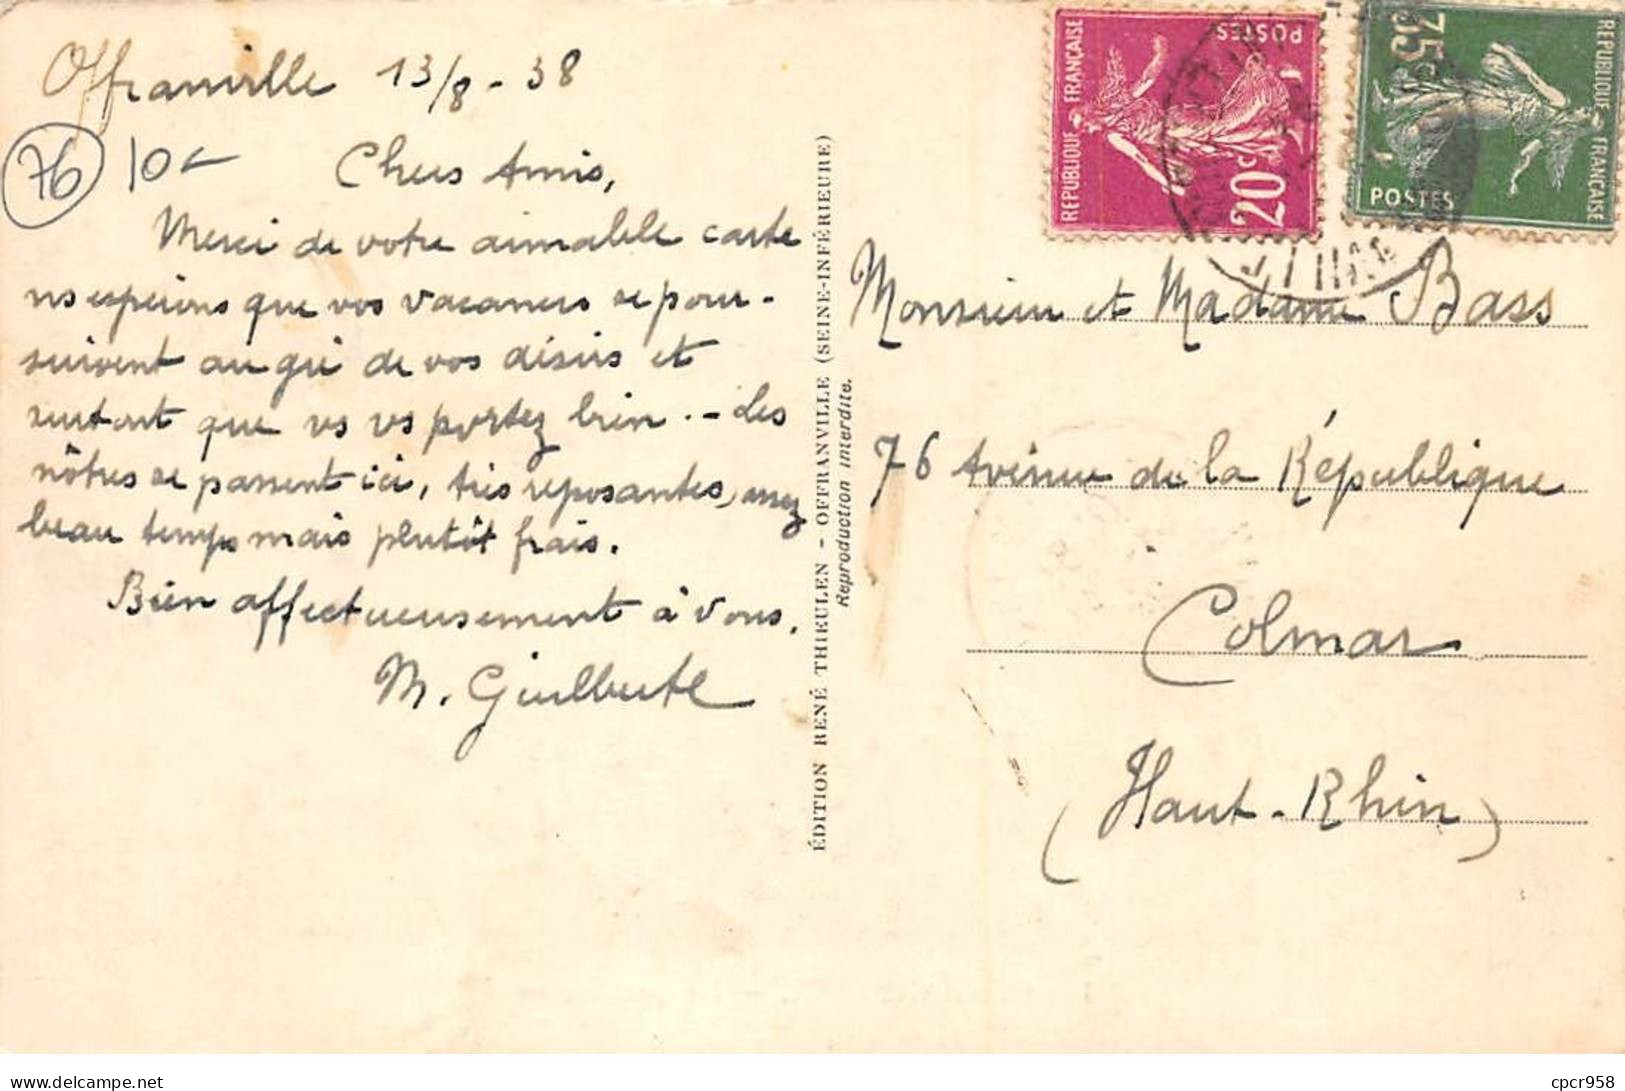 Offranville 13/8-38
76 10-
Chers Amis,
Merci de votre aimable carte
ns espérons que vos vacances se pour-
suivent au gré de vos désirs et
surtout que vs vs portez bien.- Les
nôtres se passent ici, très reposantes, assez
beau temps mais plutôt frais.
Bien affectueusement à vous.
M. Guilberte
ÉDITION RENÉ THIEULEN - OFFRANVILLE (SEINE-INFÉRIEURE)
Reproduction interdite.
RÉPUBLIQUE FRANÇAISE
POSTES
20c
RÉPUBLIQUE FRANÇAISE
POSTES
35c
Monsieur et Madame Bass
76 Avenue de la République
Colmar
(Haut-Rhin)
www.delcampe.net
cpcr958